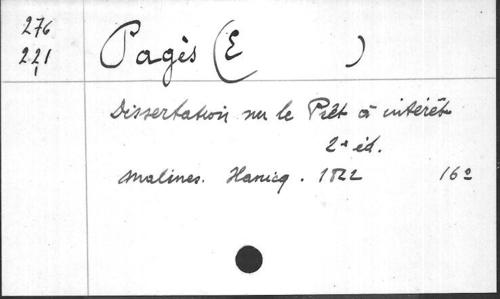 276
221
Pagès (E )
Dissertation sur le Prêt à intérêt
2e éd.
Malines. Hanicq. 1822 16º